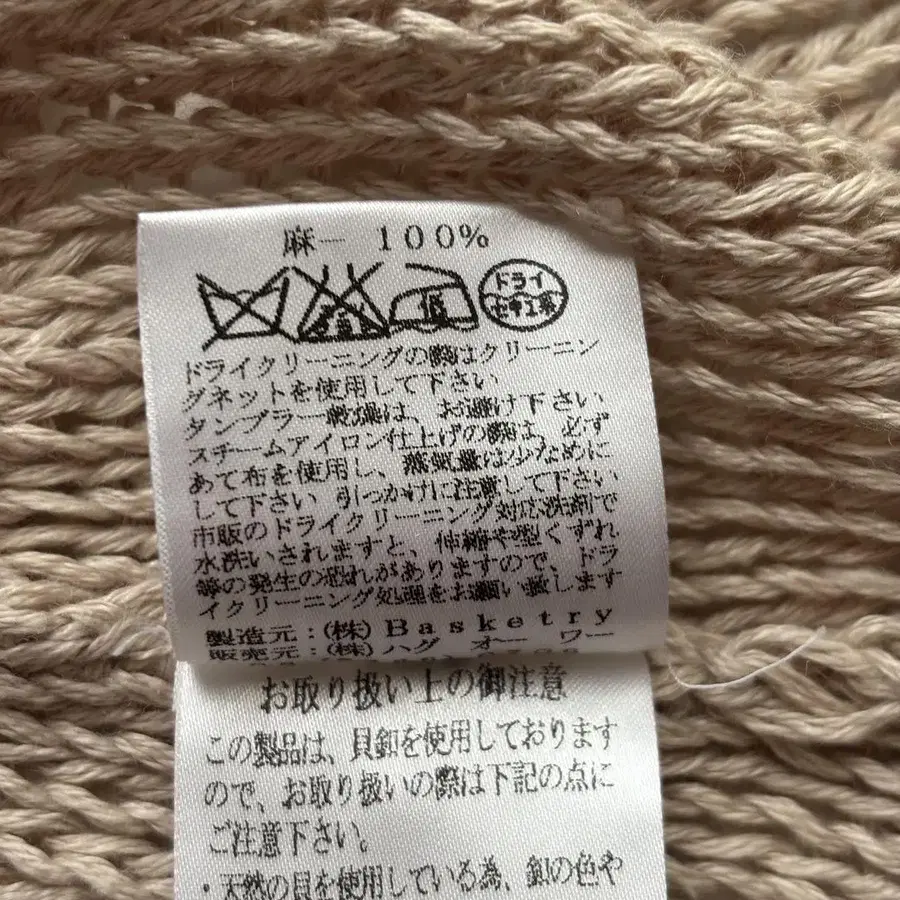 麻ー 100%
ドライ
セキユ系
ドライクリーニングの際はクリーニン
グネットを使用して下さい
タンブラー乾燥は、お避け下さい
スチームアイロン仕上げの際は、必ず
あて布を使用し、蒸気量は少なめに
して下さい 引つかけに注意して下さい
市販のドライクリーニング対応洗剤で
水洗いされますと、伸縮や型くずれ
等の発生の恐れがありますので、ドラ
イクリーニング処理をお願い致します
製造元:(株)Basketry
販売元:(株)ハグ オー ワー
お取り扱い上の御注意
この製品は、貝釦を使用しております
ので、お取り扱いの際は下記の点に
ご注意下さい。
・天然の貝を使用している為、釦の色や